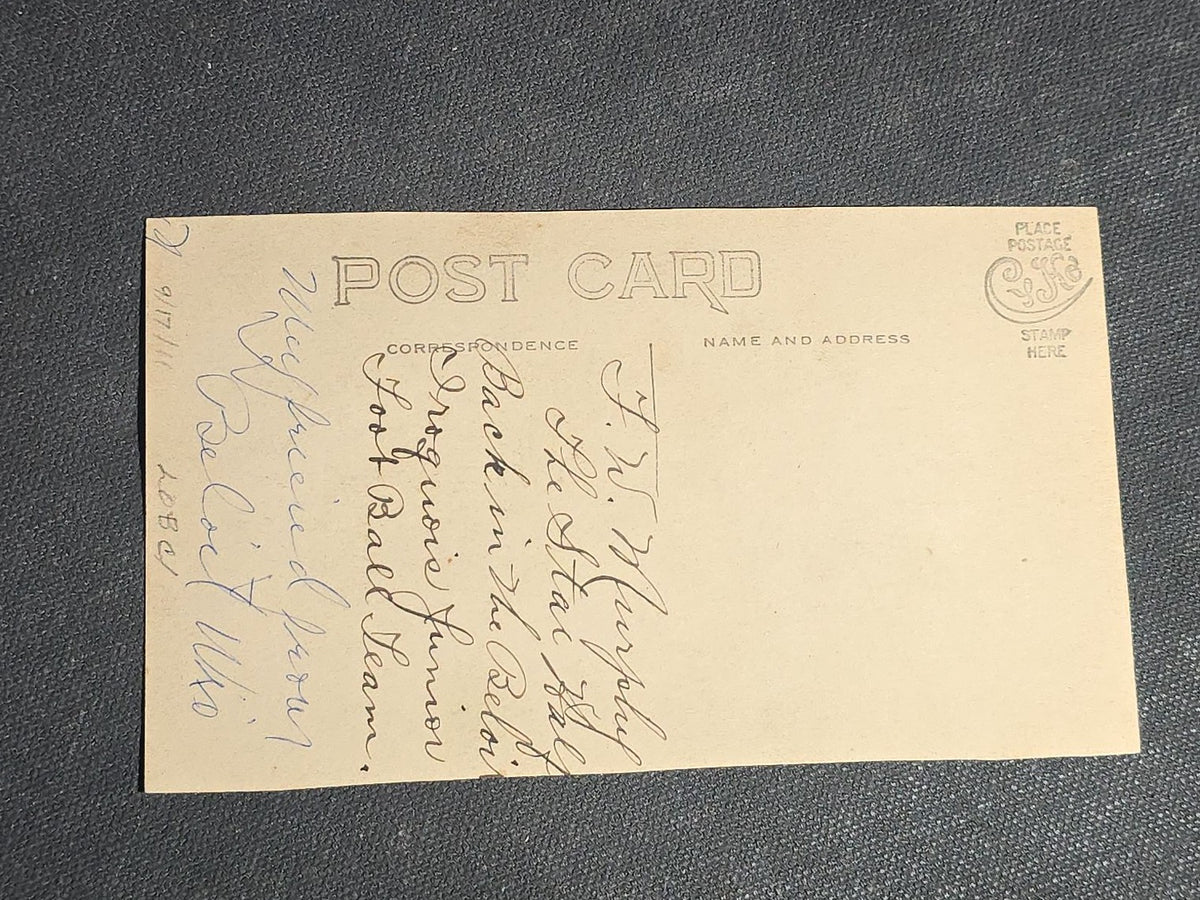 POST CARD
CORRESPONDENCE
NAME AND ADDRESS
PLACE
POSTAGE
STAMP
HERE
F. W. Murphy
The Star Half
Back in the Beloit
Iroquois Junior
Foot Ball Team.
My frieind from
Beloit Wis
9/17/11